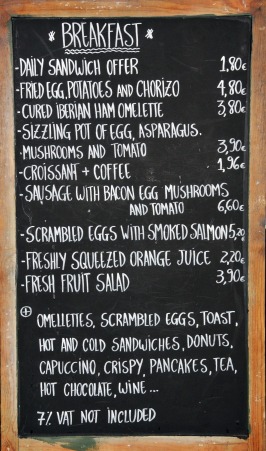 * BREAKFAST *
-DAILY SANDWICH OFFER 1,80€
-FRIED EGG, POTATOES AND CHORIZO 4,80€
-CURED IBERIAN HAM OMELETTE 3,80€
-SIZZLING POT OF EGG, ASPARAGUS.
MUSHROOMS AND TOMATO 3,90€
-CROISSANT + COFFEE 1,96€
-SAUSAGE WITH BACON EGG MUSHROOMS
AND TOMATO 6,60€
-SCRAMBLED EGGS WITH SMOKED SALMON 5,20€
-FRESHLY SQUEEZED ORANGE JUICE 2,20€
-FRESH FRUIT SALAD 3,90€
⊕ OMELLETTES, SCRAMBLED EGGS, TOAST,
HOT AND COLD SANDWICHES, DONUTS,
CAPUCCINO, CRISPY, PANCAKES, TEA,
HOT CHOCOLATE, WINE...
7% VAT NOT INCLUDED